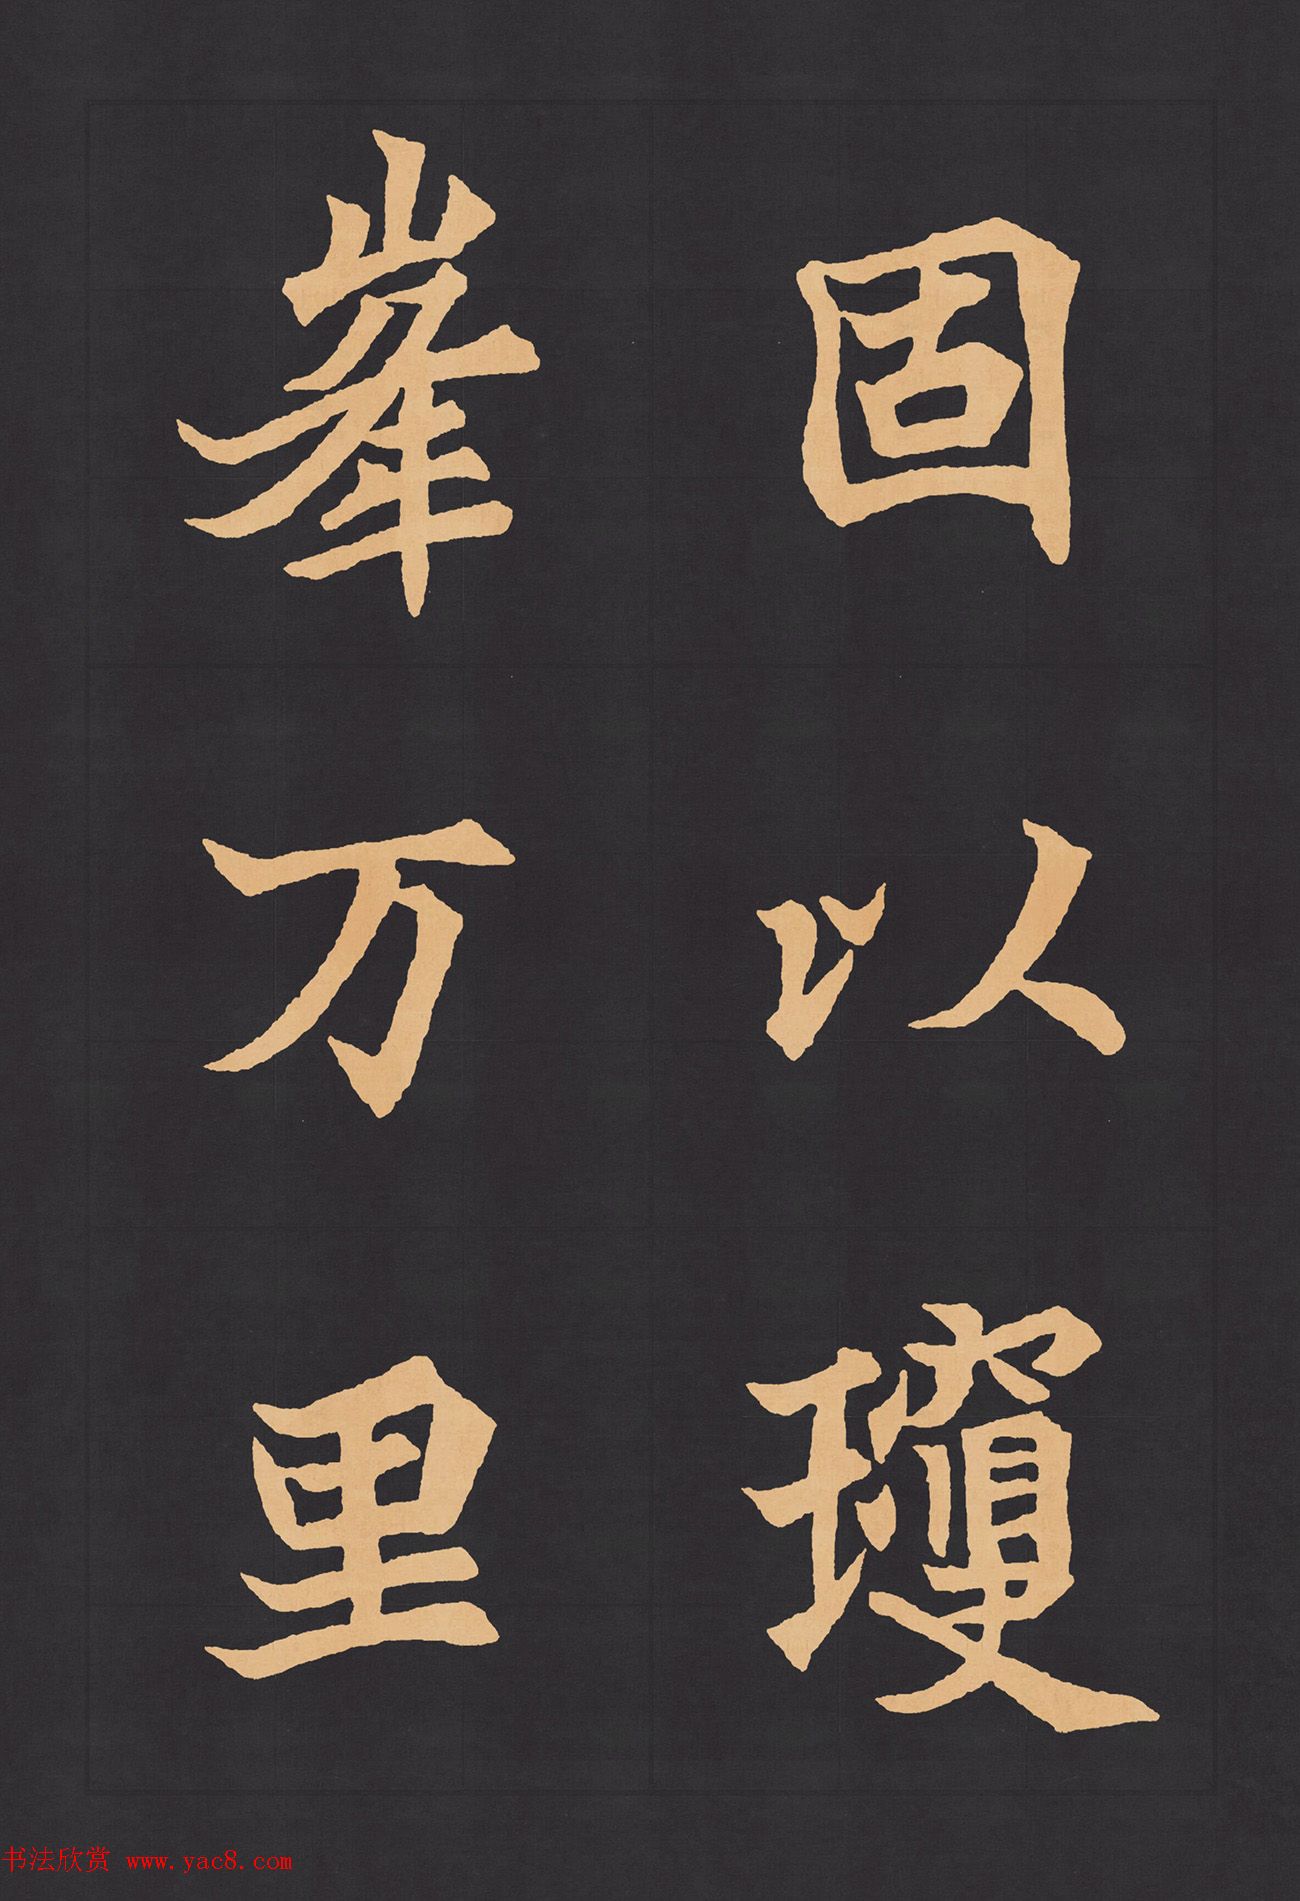 固以瓊
峯万里
书法欣赏 www.yac8.com